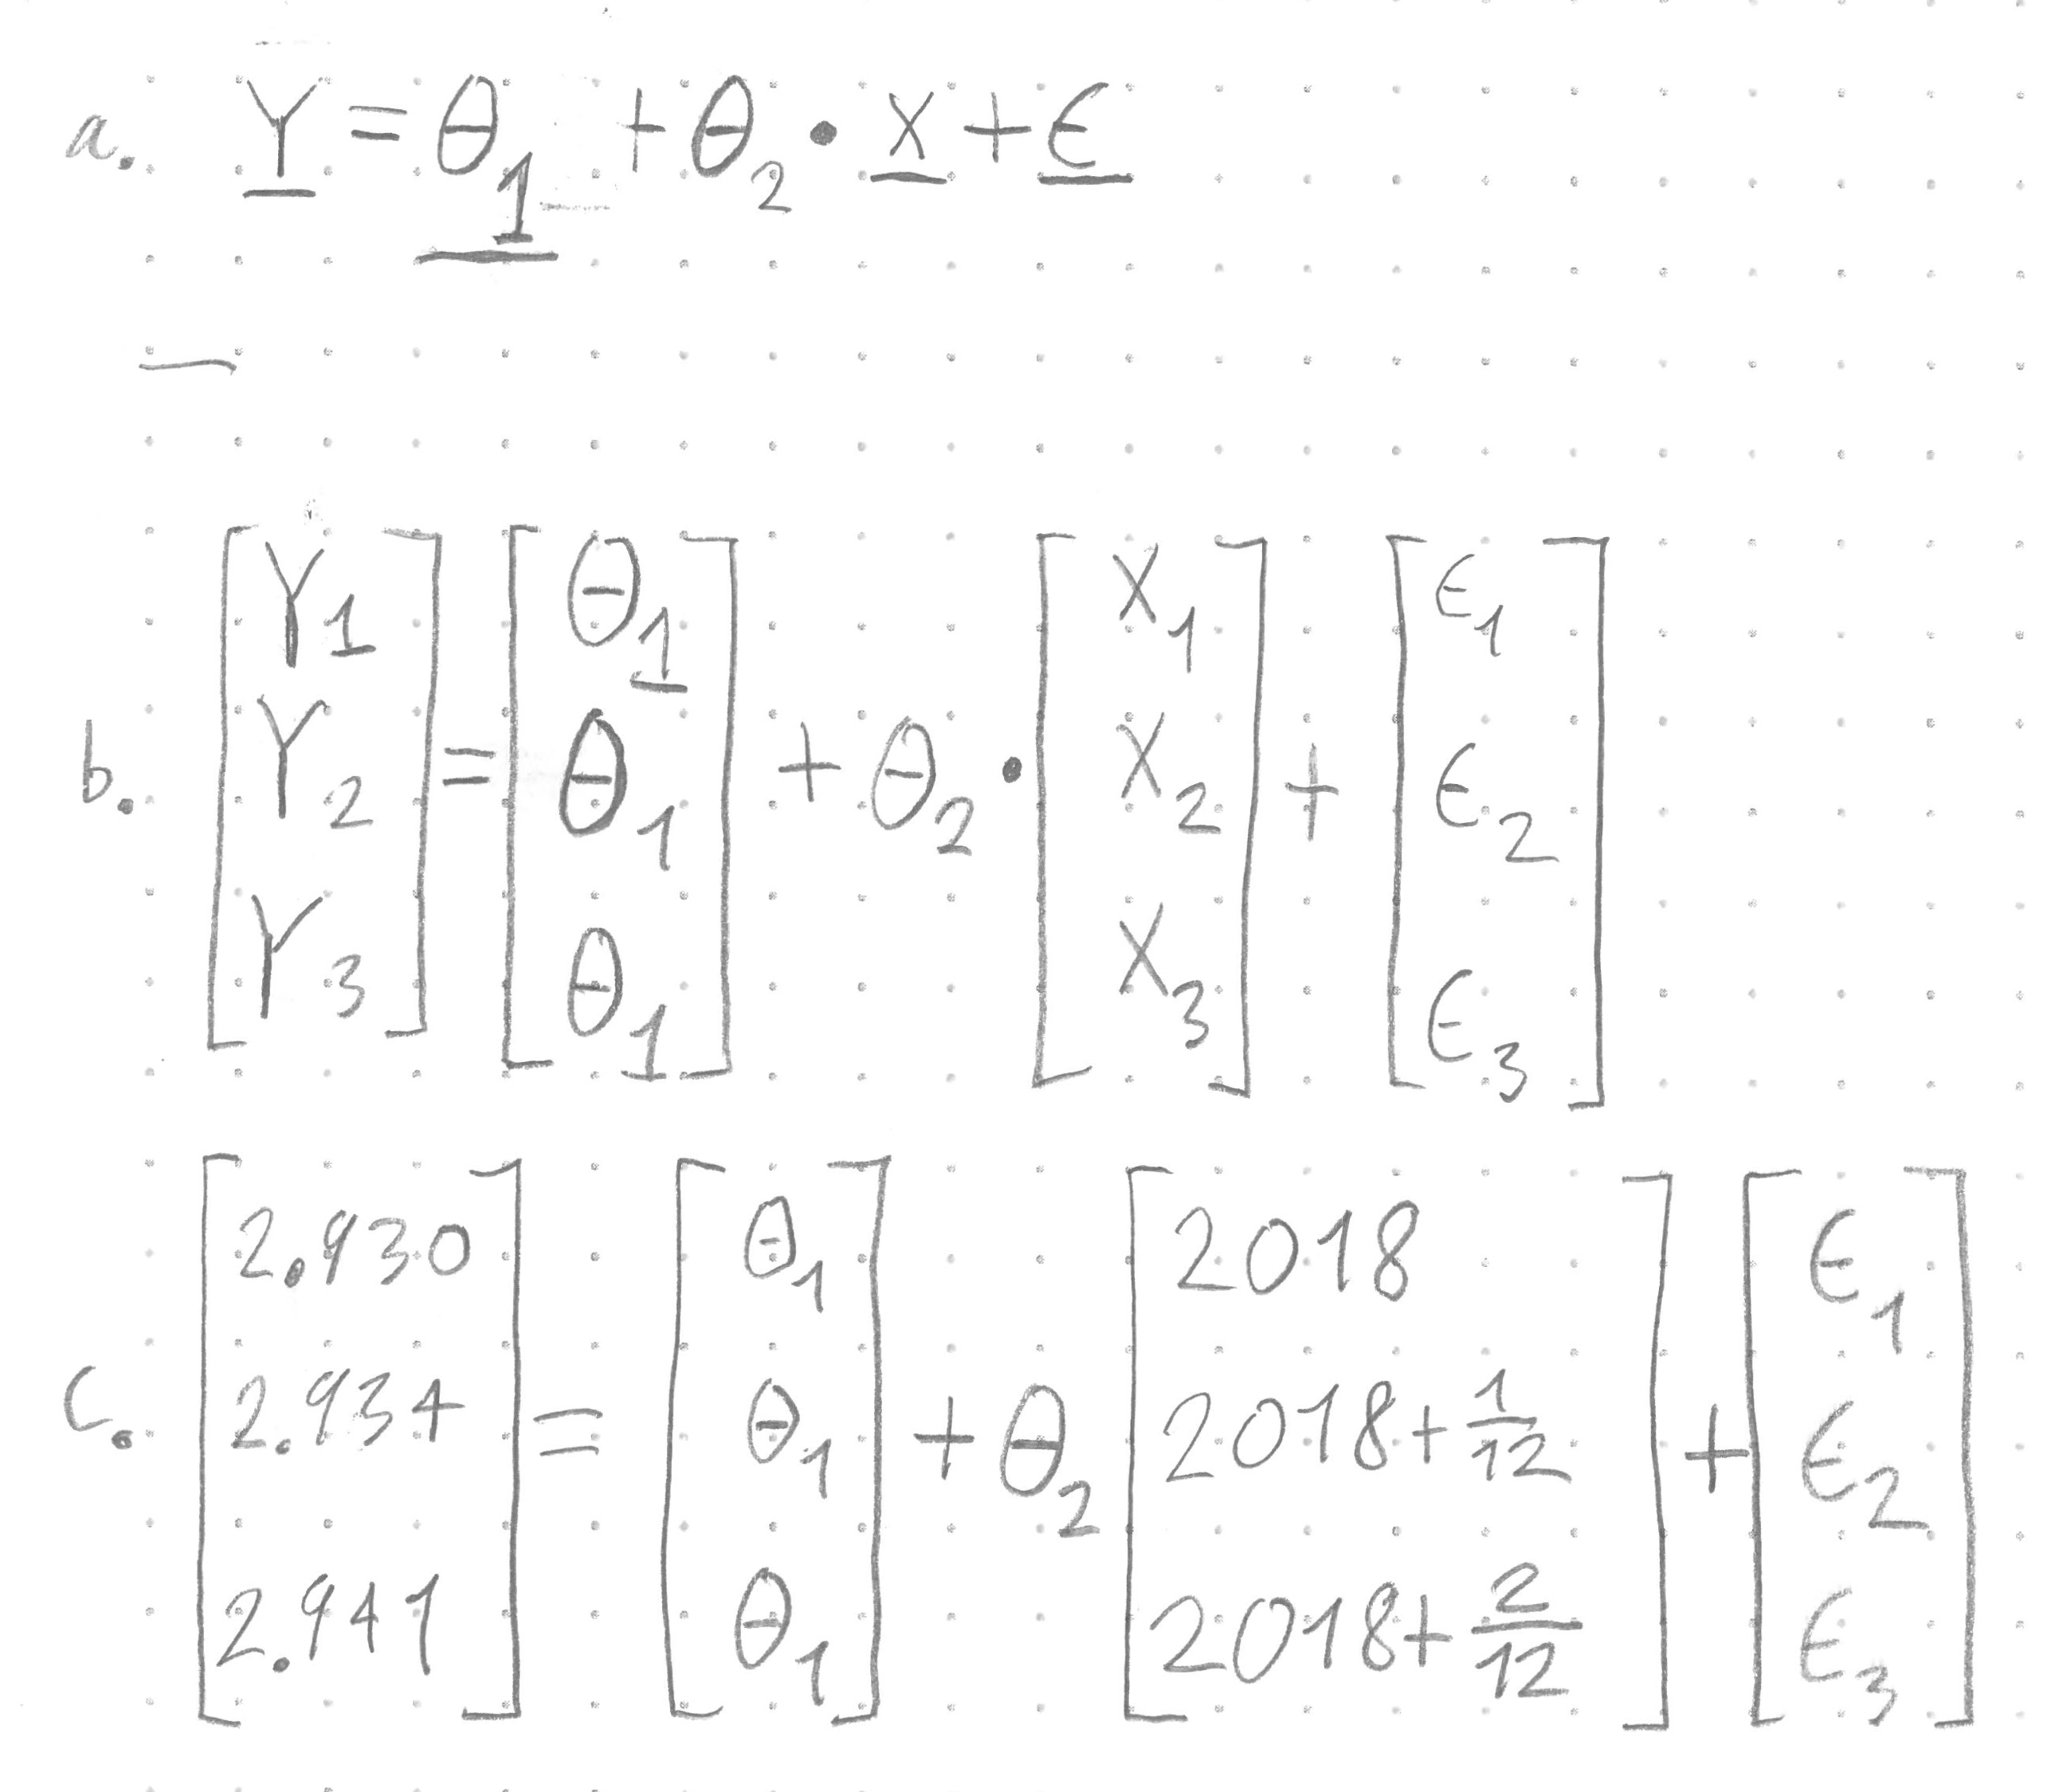 a. Y = θ1 + θ2 • x + ϵ
b. [Y1 Y2 Y3] = [θ1 θ1 θ1] + θ2 • [x1 x2 x3] + [ϵ1 ϵ2 ϵ3]
c. [2.930 2.934 2.941] = [θ1 θ1 θ1] + θ2 [2018 2018+1/12 2018+2/12] + [ϵ1 ϵ2 ϵ3]